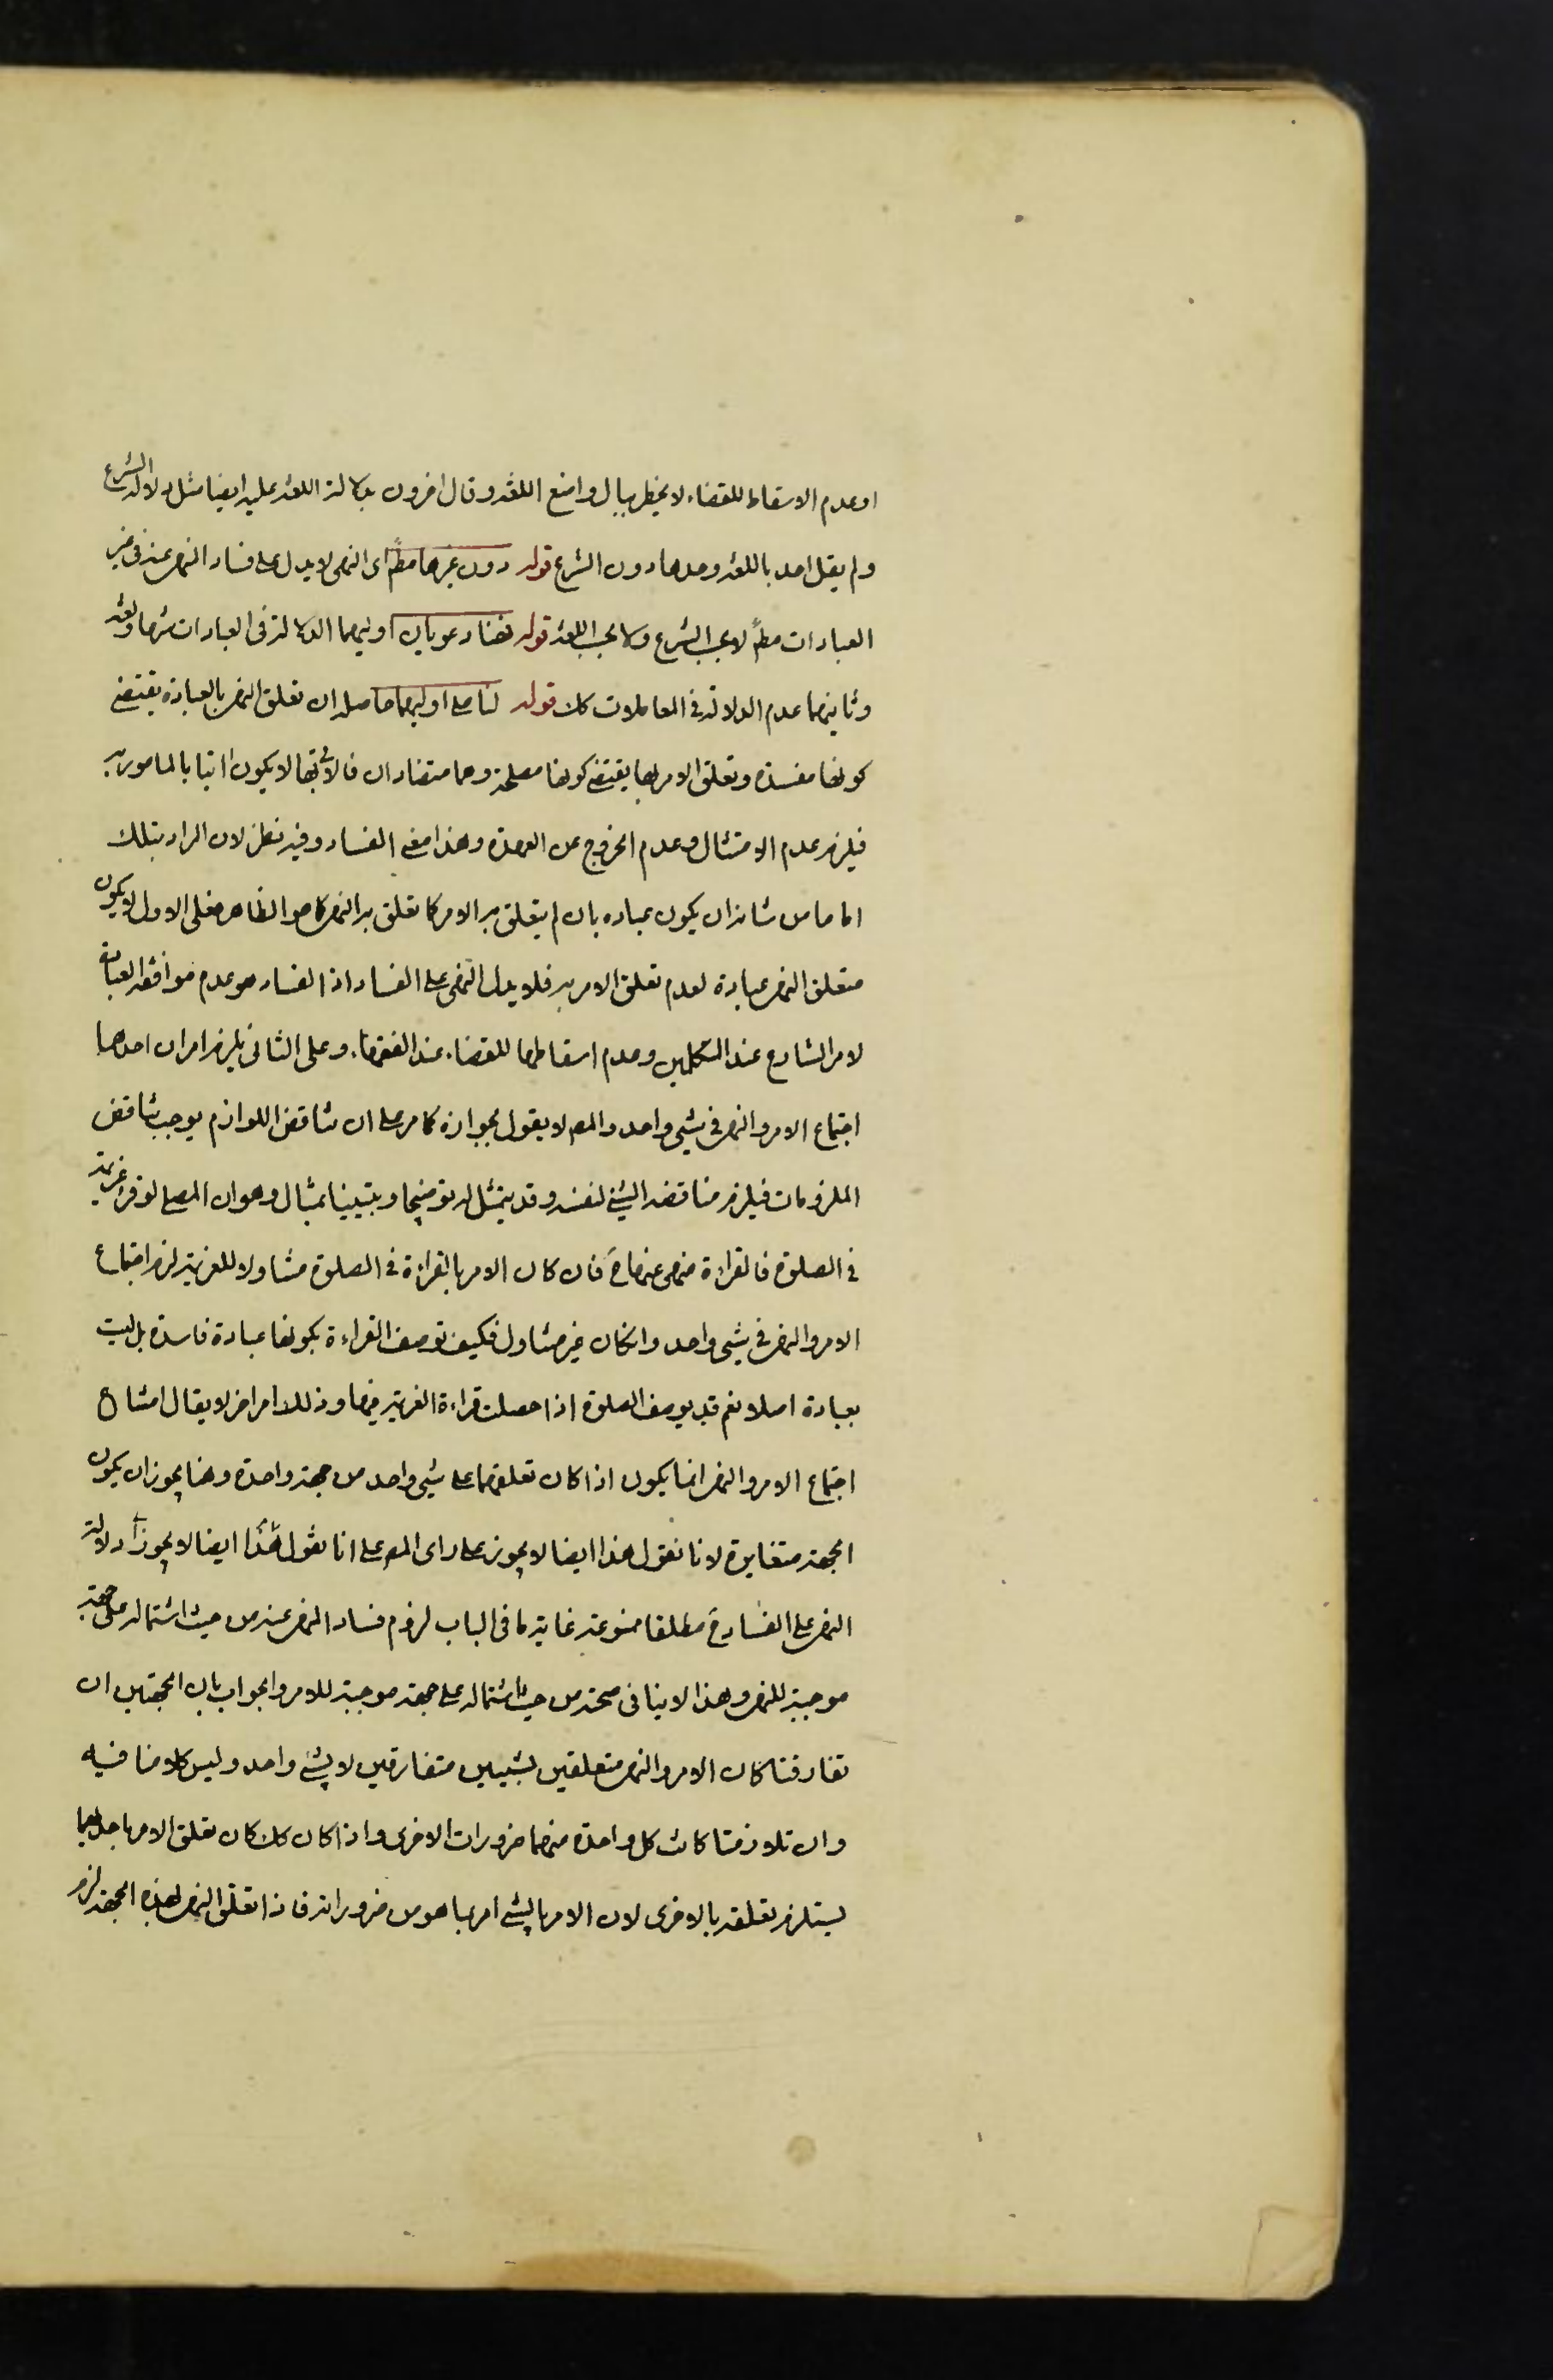 او عدم الاسقاط للقضاء لا يخطر ببال واضع اللغة وقال اخرون بدلالة اللغة عليه ايضا مثل دلالة الشرع
ولم يقل احد باللغة وحدها دون الشرع قوله دون غيرها مطم اى النهى لا يدل على فساد المنهى عنه فى غير
العبادات مطم لا بحسب الشرع ولا بحسب اللغة قوله فهنا دعويان اوليهما الدلالة فى العبادات شرعا ولغة
وثانيهما عدم الدلالة فى المعاملات كك قوله لنا على اوليهما حاصله ان تعلق النهى بالعبادة يقتضى
كونها مفسدة وتعلق الامر بها يقتضى كونها مصلحة وهما متضادان فالاتى بها لا يكون اتيا بالمامور به
فيلزم عدم الامتثال وعدم الخروج عن العهدة وهذا معنى الفساد وفيه نظر لان المراد بتلك
اما ما من شانه ان يكون عباده بان لم يتعلق به الامر كما تعلق به النهى كما هو الظاهر فعلى الاول لا يكون
متعلق النهى عبادة لعدم تعلق الامر به فلا يدل النهى على الفساد اذ الفساد هو عدم موافقة العبادة
لامر الشارع عند المتكلمين وعدم اسقاطها للقضاء عند الفقهاء وعلى الثانى يلزم امران احدهما
اجتماع الامر والنهى فى شيى واحد والمص لا يقول بجوازه كما مر على ان تناقض اللوازم يوجب تناقض
الملزومات فيلزم مناقضة الشيئ لنفسه وقد يتمثل له توضيحا وتبيينا بمثال وهو ان المصلى لو قرا عزيمة
فى الصلوة فالقراءة منهى عنها ح فان كان الامر بالقراءة فى الصلوة متناولا للعزيمة لزم اجتماع
الامر والنهى فى شيى واحد وان كان غير متناول فكيف توصف القراءة بكونها عبادة فاسدة بل ليست
بعبادة اصلا نعم قد يوصف الصلوة اذا حصلت قراءة العزيمة فيها وذلك امر اخر لا يقال امتناع
اجتماع الامر والنهى انما يكون اذا كان تعلقهما على شيى واحد من جهة واحدة وهنا يجوز ان يكون
الجهة متغايرة لانا نقول هذا ايضا لا يجوز على راى المص على انا نقول هذا ايضا لا يجوز اذ دلالة
النهى على الفساد ح مطلقا ممنوعة غاية ما فى الباب لزوم فساد المنهى عنه من حيث اشتماله على جهة
موجبة للنهى وهذا لا ينافى صحته من حيث اشتماله على جهة موجبة للامر والجواب بان الجهتين ان
تفارقتا كان الامر والنهى متعلقين بشيئين متفارقين لا بشيئ واحد وليس كلامنا فيه
وان تلازمتا كانت كل واحدة منهما ضرورات الاخرى واذا كان كك كان تعلق الامر باحدلهما
يستلزم تعلقه بالاخرى لان الامر بالشيئ امر بما هو من ضروراته فاذا تعلق النهى بهذه الجهة لزم